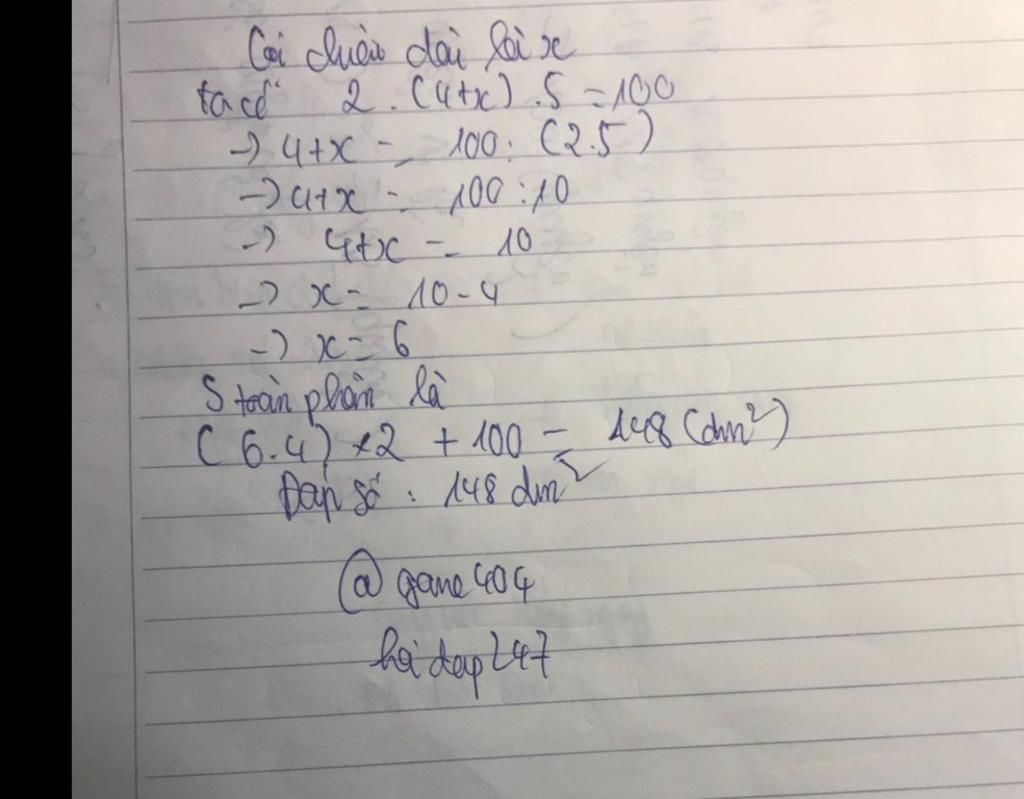 Gọi chiều dài là x
ta có 2 . (4+x) . 5 = 100
→ 4+x = 100 : (2.5)
→ 4+x = 100 : 10
→ 4+x = 10
→ x = 10 - 4
→ x = 6
S toàn phần là
(6.4) x 2 + 100 = 148 (dm²)
Đáp số : 148 dm²
@game404
hoidap247